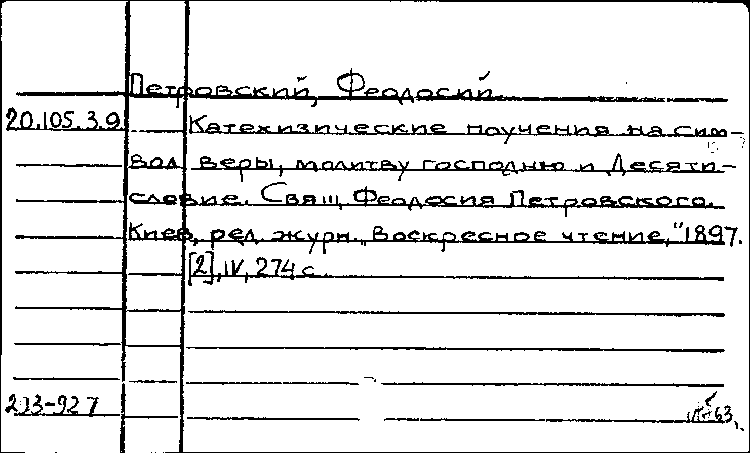 Петровский, Феодосий.
20.105.3.9 Катехизические поучения на сим-
вол веры, молитву господню и Десяти-
словие. Свящ. Феодосия Петровского.
Киев, ред. журн. „Воскресное чтение," 1897.
[2], IV, 274 с.
203-927